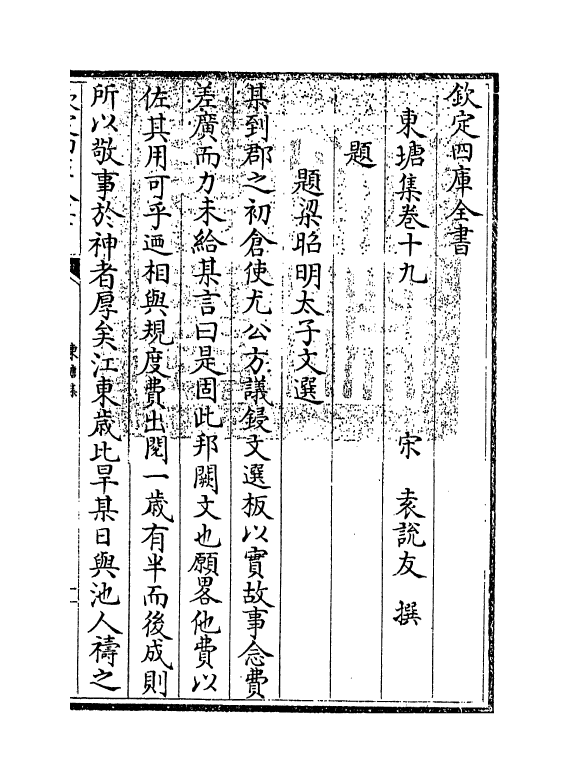 欽定四庫全書
東塘集卷十九　宋　袁說友　撰
題
題梁昭明太子文選
某到郡之初倉使尤公方議鋟文選板以實故事念費
差廣而力未給某言曰是固此邦闕文也願畧他費以
佐其用可乎迺相與規度費出閱一歲有半而後成則
所以敬事於神者厚矣江東歲比旱某日與池人禱之
東塘集